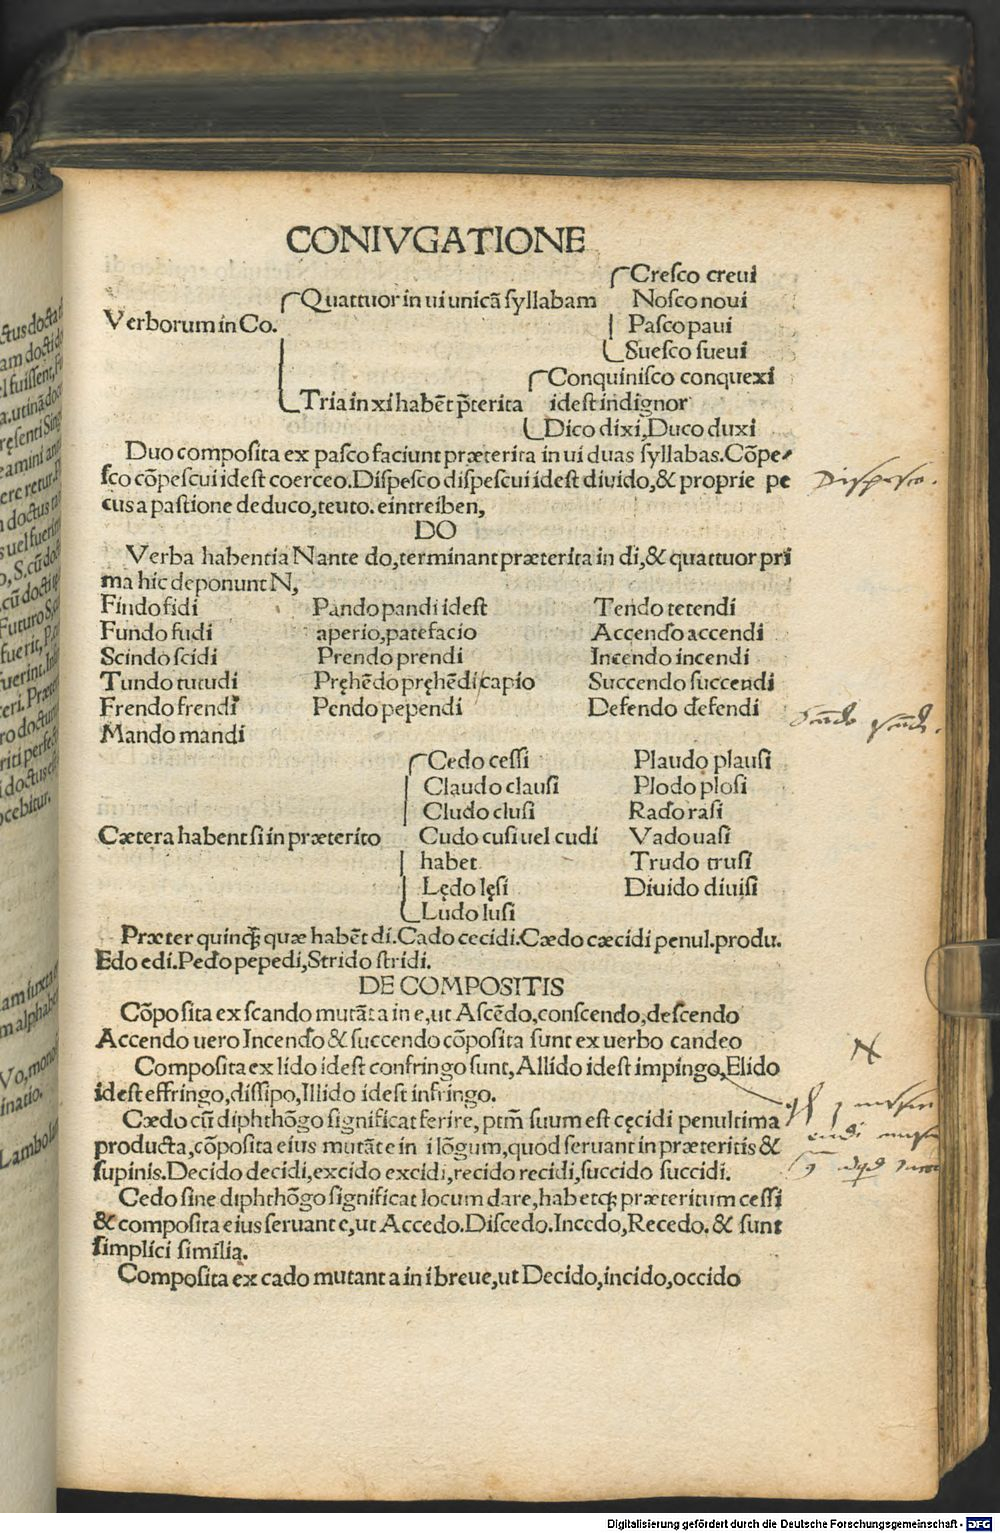 CONIVGATIONE
Cresco creui
Quattuor in ui unicā syllabam Nosco noui
Verborum in Co. Pasco paui
Suesco sueui
Conquinisco conquexi
Tria in xi habēt p̄terita idest indignor
Dico dixi, Duco duxi
Duo composita ex pasco faciunt præterita in ui duas syllabas. Cōpe⸗
sco cōpescui idest coerceo. Dispesco dispescui idest diuido, & proprie pe
cus a pastione deduco, teuto. eintreiben,
DO
Verba habentia N ante do, terminant præterita in di, & quattuor pri
ma hic deponunt N,
Findo fidi Pando pandi idest Tendo tetendi
Fundo fudi aperio, patefacio Accendo accendi
Scindo scidi Prendo prendi Incendo incendi
Tundo tutudi Pręhēdo pręhēdi capio Succendo succendi
Frendo frendi Pendo pependi Defendo defendi
Mando mandi
Cedo cessi Plaudo plausi
Claudo clausi Plodo plosi
Cludo clusi Rado rasi
Cætera habent si in præterito Cudo cusi uel cudi Vado uasi
habet Trudo trusi
Lędo lęsi Diuido diuisi
Ludo lusi
Præter quinqȝ quæ habēt di. Cado cecidi. Cædo cæcidi penul. produ.
Edo edi. Pedo pepedi, Strido stridi.
DE COMPOSITIS
Cōposita ex scando mutāt a in e, ut Ascēdo, conscendo, descendo
Accendo uero Incendo & succendo cōposita sunt ex uerbo candeo
Composita ex lido idest confringo sunt, Allido idest impingo, Elido
idest effringo, dissipo, Illido idest infringo.
Cædo cū diphthōgo significat ferire, ptm̄ suum est cęcidi penultima
producta, cōposita eius mutāt e in i lōgum, quod seruant in præteritis &
supinis. Decido decidi, excido excidi, recido recidi, succido succidi.
Cedo sine diphthōgo significat locum dare, habetqȝ præteritum cessi
& composita eius seruant e, ut Accedo. Discedo. Incedo, Recedo. & sunt
simplici similia.
Composita ex cado mutant a in i breue, ut Decido, incido, occido
Dispesco.
Digitalisierung gefördert durch die Deutsche Forschungsgemeinschaft - DFG